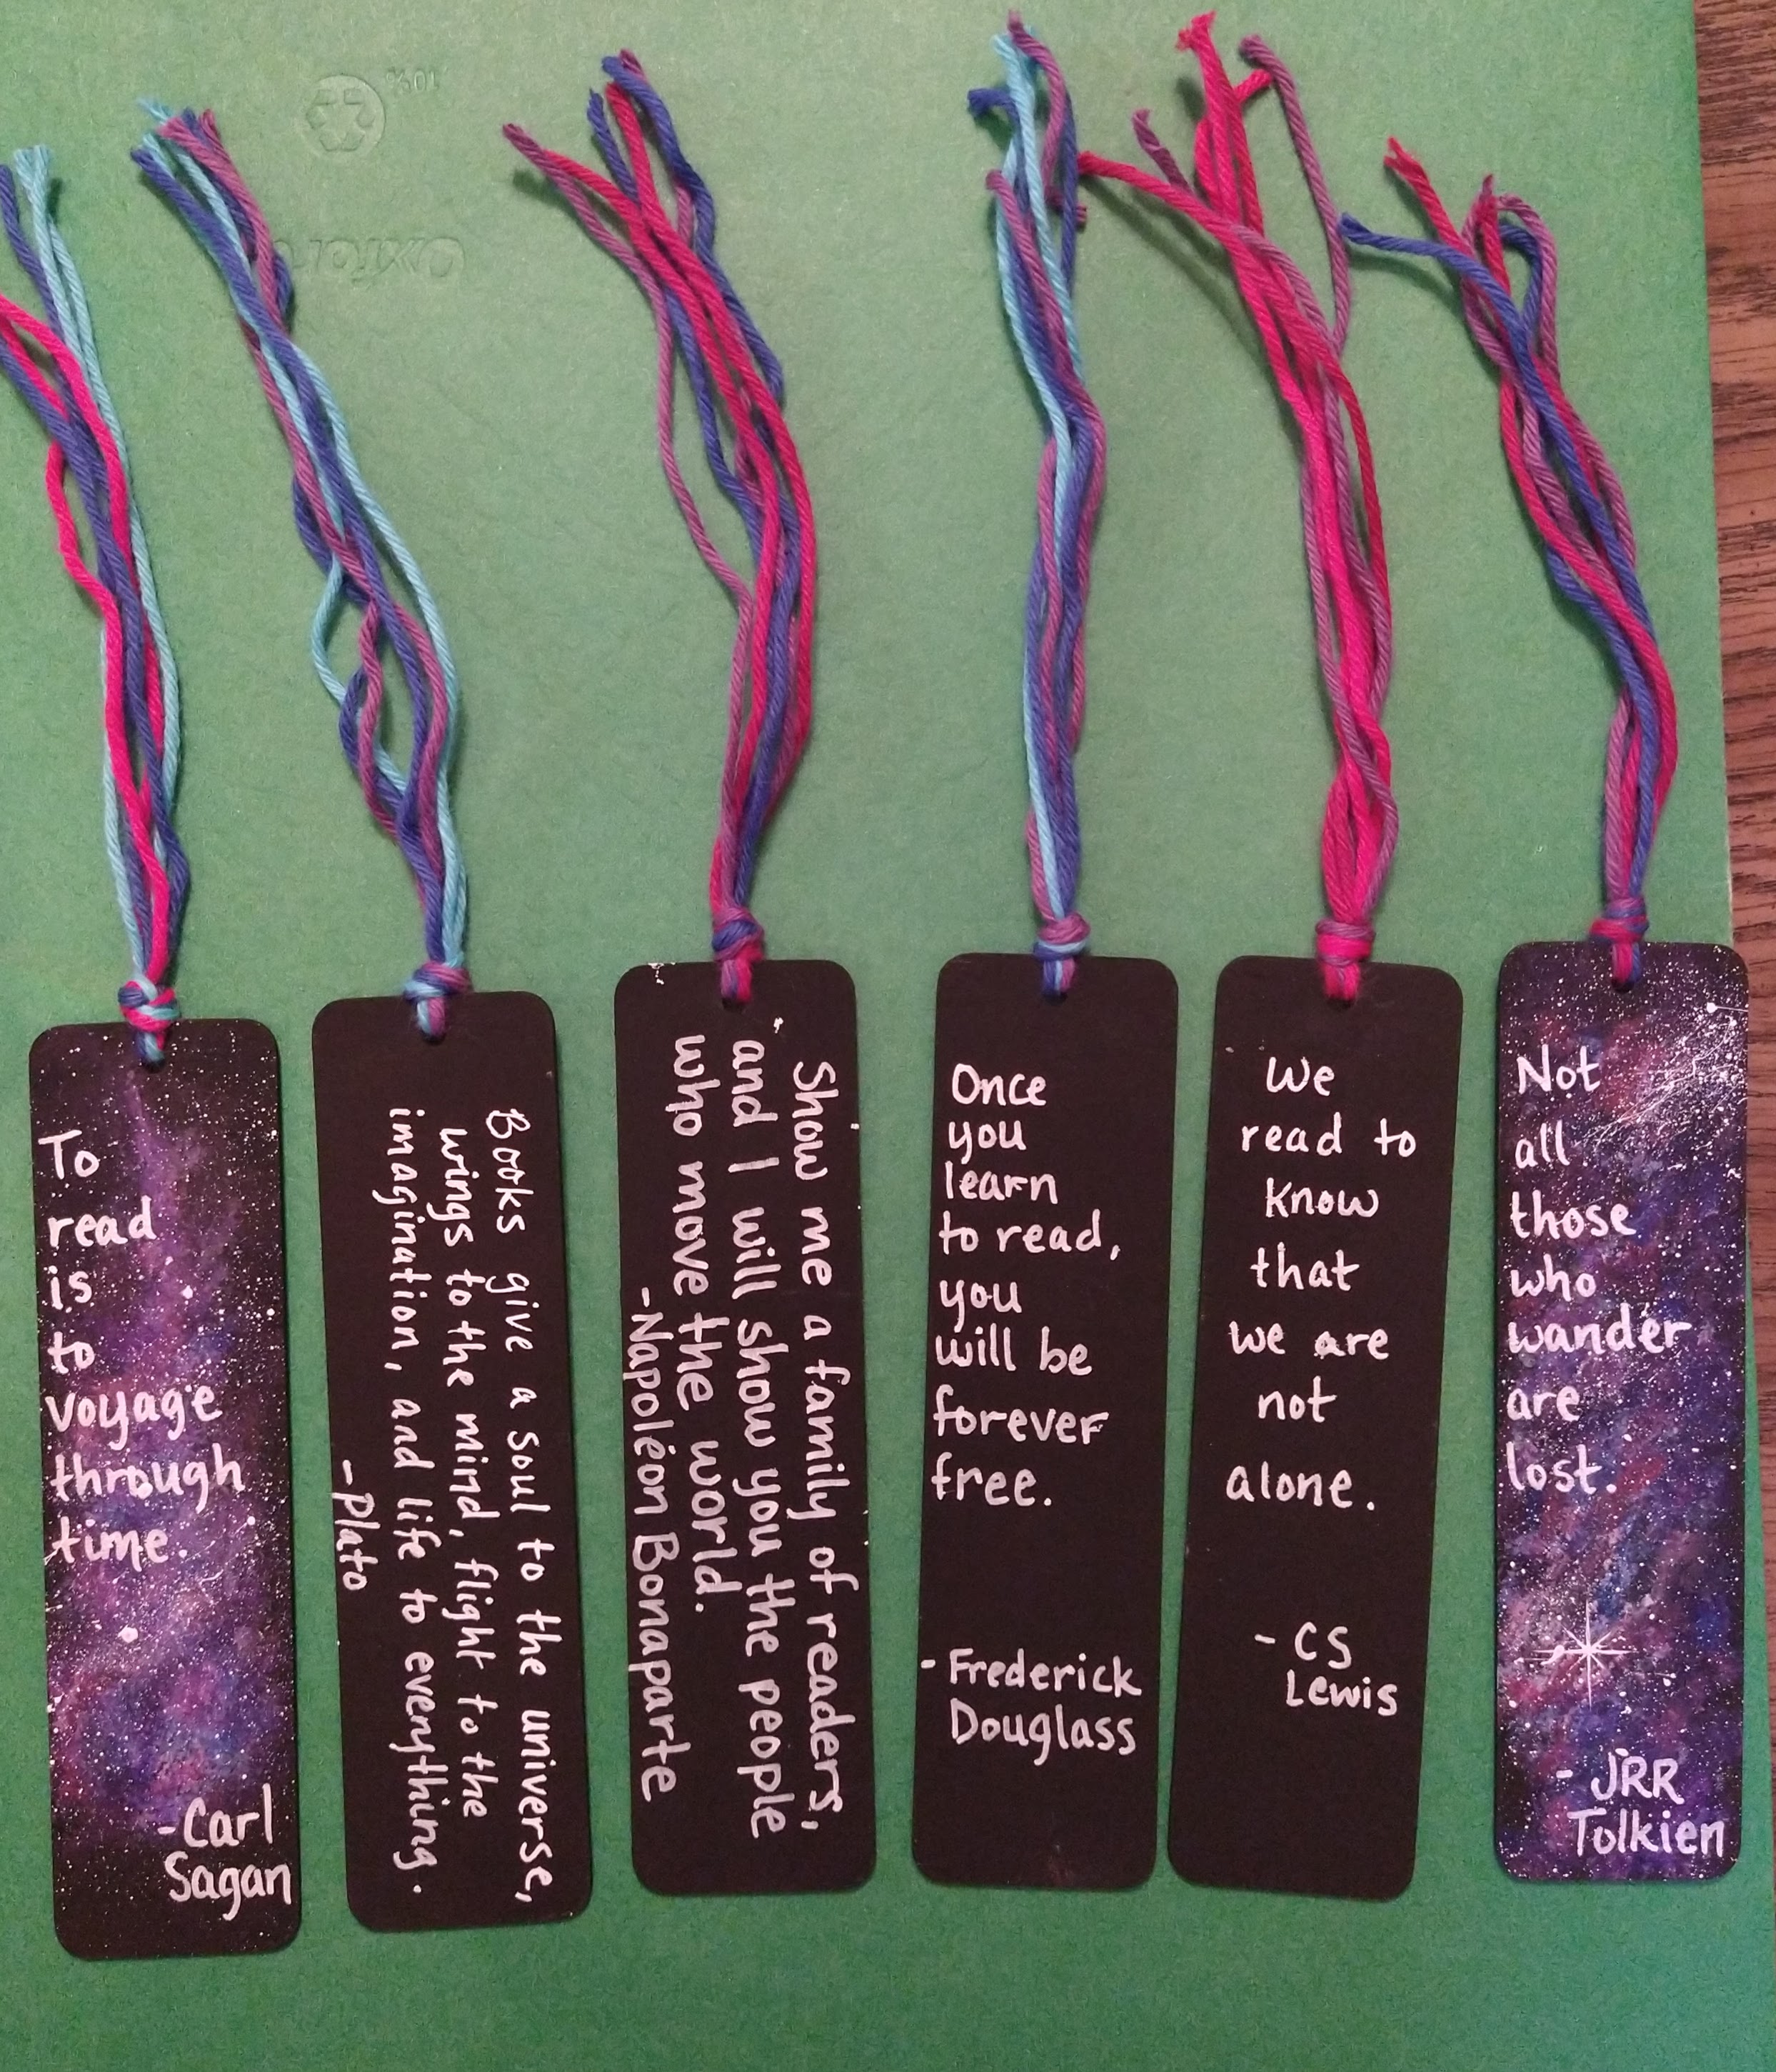 To
read
is
to
voyage
through
time.
-Carl
Sagan
Books give a soul to the universe,
wings to the mind, flight to the
imagination, and life to everything.
-Plato
Show me a family of readers,
and I will show you the people
who move the world.
-Napoléon Bonaparte
Once
you
learn
to read,
you
will be
forever
free.
- Frederick
Douglass
We
read to
know
that
we are
not
alone.
- CS
Lewis
Not
all
those
who
wander
are
lost.
- JRR
Tolkien
10%
Oxford